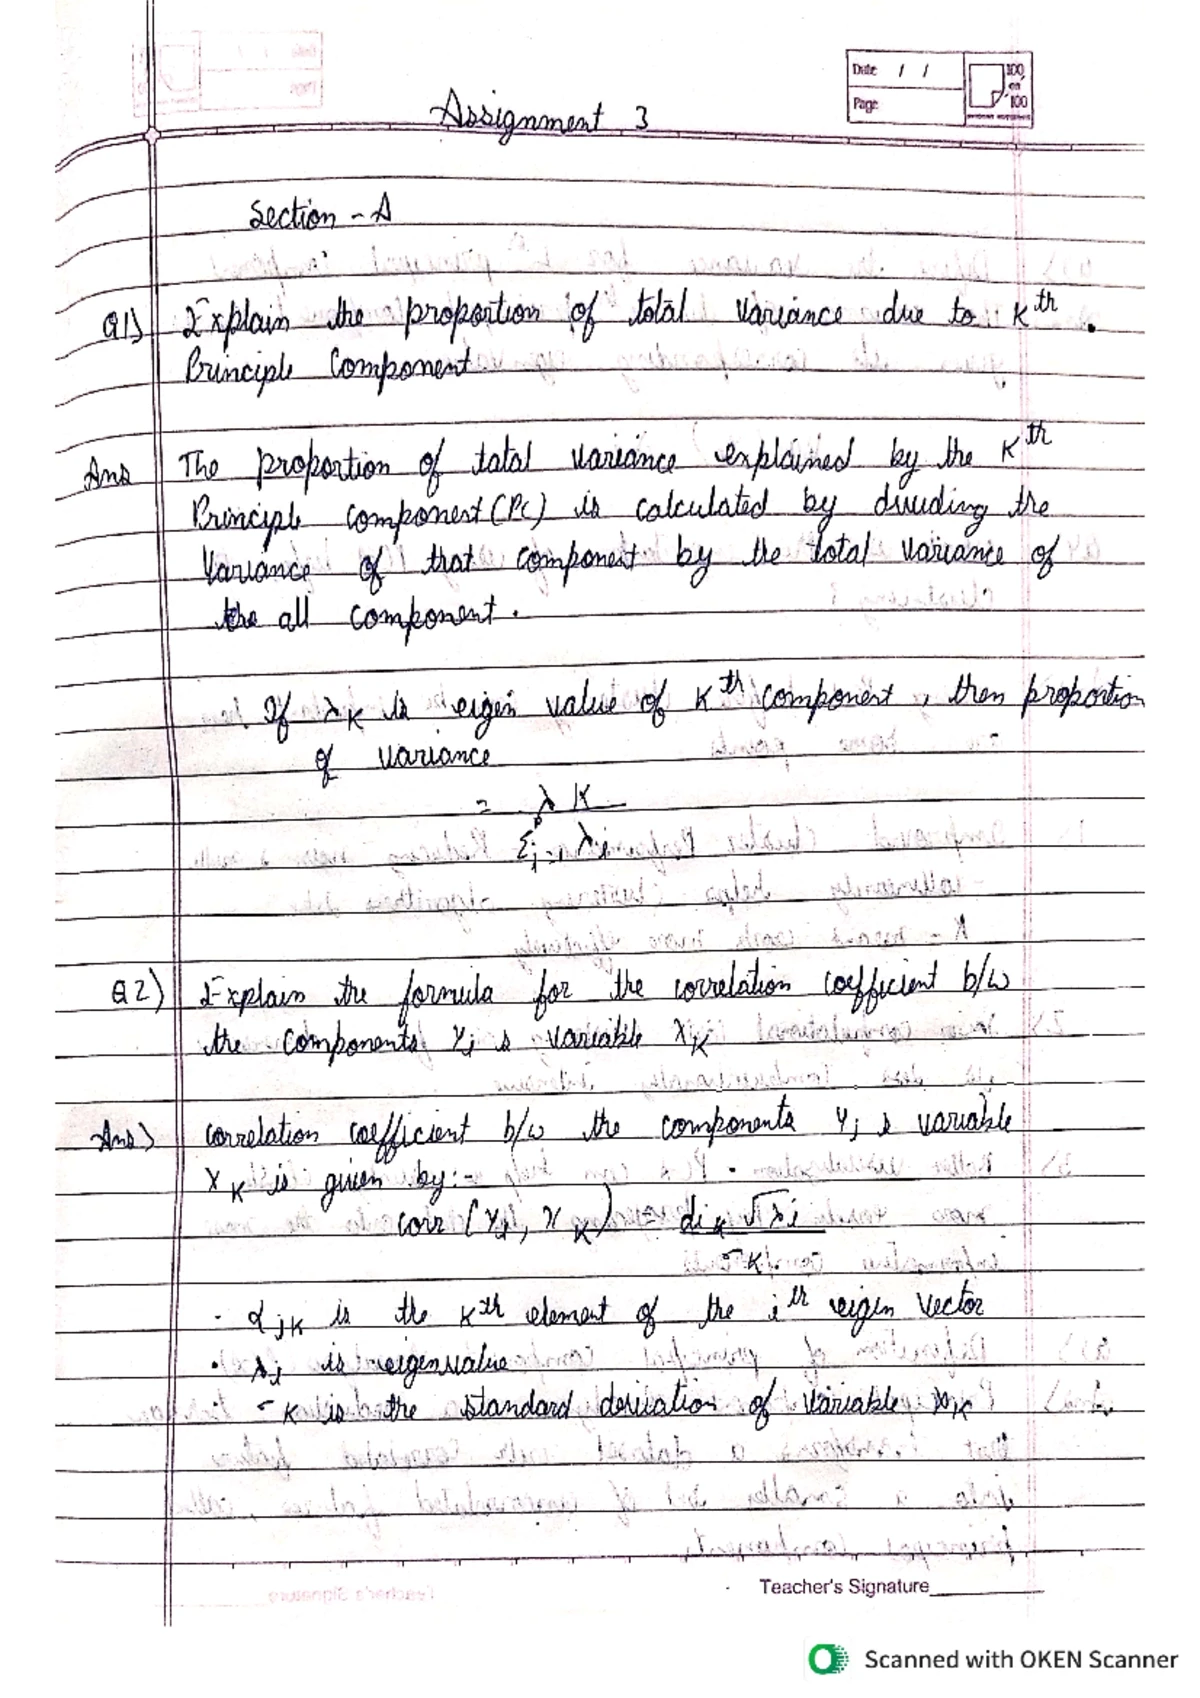 Date / /
Page
100 on 100
Assignment 3
Section - A
Q1) Explain the proportion of total variance due to Kth
Principle Component.
Ans The proportion of total variance explained by the Kth
Principle component (PC) is calculated by dividing the
Variance of that component by the total variance of
the all component.
If λK is eigen value of Kth component, then proportion
of variance
= λK
Σ^p j=1 λi
Q2) Explain the formula for the correlation coefficient b/w
the components Yi & variable XK
Ans) correlation coefficient b/w the components Yj & variable
XK is given by:-
corr (Yi, XK) = αik √λi
σK
· αjK is the Kth element of the ith eigen vector
· λi is eigenvalue
σK is the standard deviation of variable XK
Teacher's Signature
Scanned with OKEN Scanner